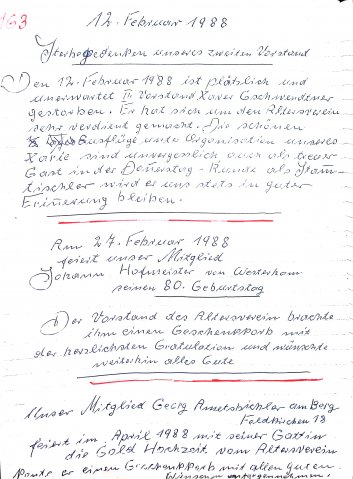 163
12. Februar 1988
Sterbegedenken unseres zweiten Vorstand
Den 12. Februar 1988 ist plötzlich und
unerwartet II. Vorstand Xaver Gschwendtner
gestorben. Er hat sich um den Altersverein
sehr verdient gemacht. Die schönen
Ausflüge unter Organisation unseres
Xari sind unvergesslich auch als treuer
Gast in der Donnerstag-Runde als Stamm-
tischler wird er uns stets in guter
Erinnerung bleiben.
Am 27. Februar 1988
feiert unser Mitglied
Johann Hofmeister von Westerham
seinen 80. Geburtstag
Der Vorstand des Altersverein brachte
ihm einen Geschenkkorb mit
der herzlichsten Gratulation und wünschte
weiterhin alles Gute
Unser Mitglied Georg am Berg
Feldkirchen 18
feiert im April 1988 mit seiner Gattin
die Gold Hochzeit vom Altersverein
konnte er einen Geschenkkorb mit allen guten
Wünschen entgegennehmen.